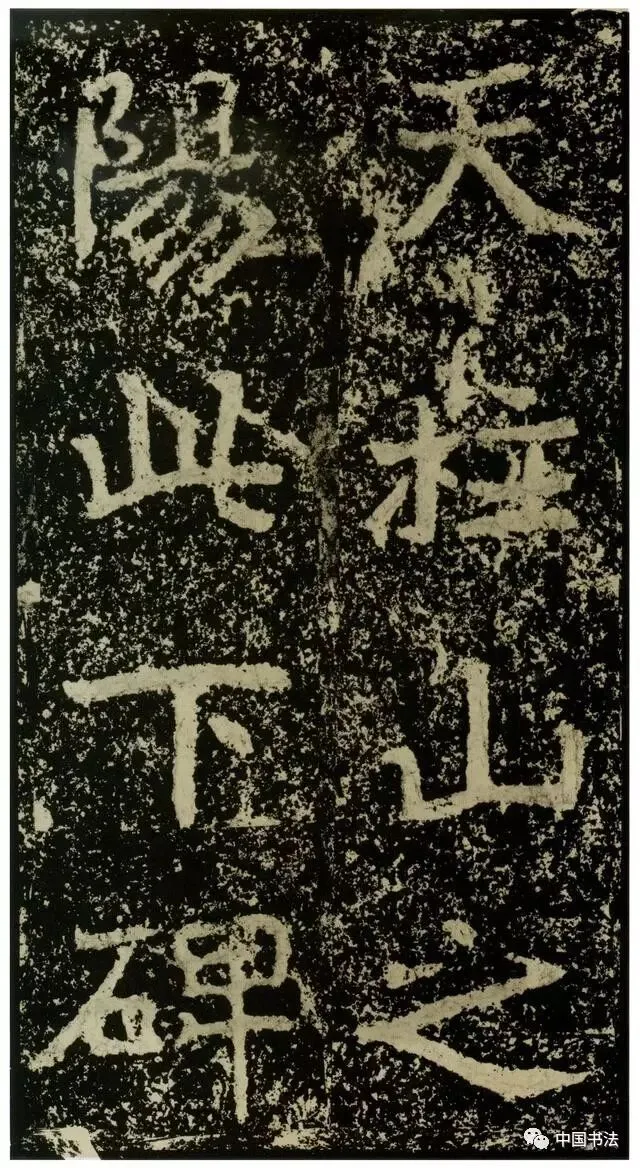 天柱山之
陽此下碑
中国书法